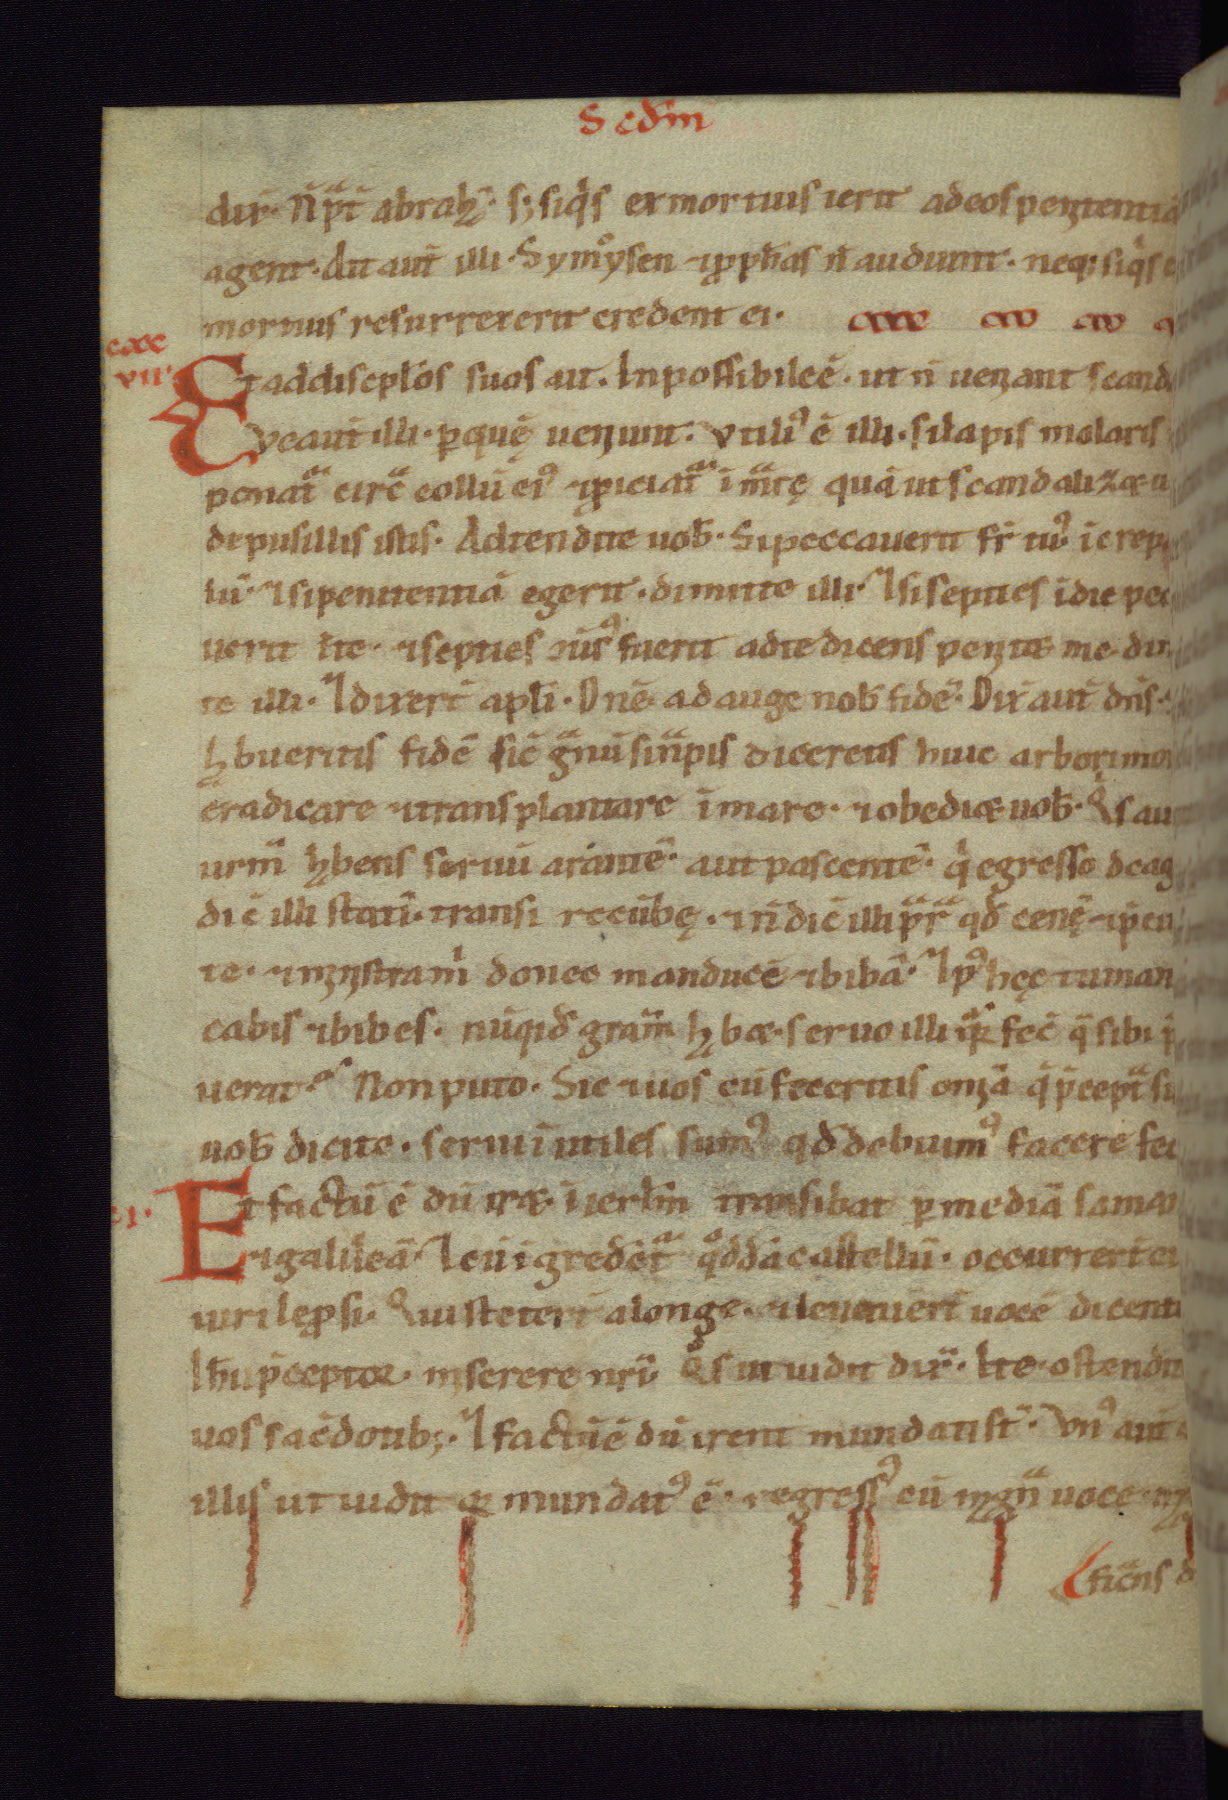 Scd̄m
dix̄. N̄ p̄t abrahā. s; siq's ex mortuis ierit ad eos penitentiā
agent. Ait aut̄ illi. Sy moẏsen ⁊ p̱ph̄as n̄ audiunt. neq; siq's e
mortuis resurrexerit credent ei.
cxc
vii
Et ad discipl̄os suos ait. Inpossibile ē. ut n̄ ueniant scand
Ve aut̄ illi. ꝑ quē ueniunt. Vtili⁹ ē illi. si lapis molaris
ponat̄ circ̄ collū ei⁹ ⁊ p̱iciat̄ ī marę quā ut scandalizæ u
de pusillis istis. Adtendite uob̄. Si peccauerit fr̄ tu⁹. ic rep
lū. ⁊ si penitentiā egerit. dimitte illi. ⁊ si septies ī die pec
uerit īte. ⁊ septies ꝯūs⁹ fuerit ad te dicens penitæ me. di
te illi. ⁊ dixer̄t apl̄i. Dn̄e adauge nob̄ fidē. Dix̄ aut̄ dn̄s. s
hbueritis fidē sic̄ gnū sinapis diceretis huic arbori mo
eradicare ⁊ transplantare ī mare. ⁊ obediæ uob̄. Q's au
urm̄ hbens seruū arantē. aut pascentē. q' egresso de ag
dic̄ illi statī. transi recūbę. ⁊ n̄ dic̄ illi par̄ qd̄ cenē ⁊ p̄cin
te. ⁊ ministra m' donec manducē ⁊ bibā. ⁊ p⁹ hęc tu man
cabis ⁊ bibes. nūqid gram̄ hbæ. seruo illi qa fec̄ q̄ sibi ī
uerat. Non puto. Sic ⁊ uos cū feceritis omīa q̄ p̄cept̄ s
uob̄ dicite. serui īutiles sum⁹ qd̄ debuim⁹ facere fec
ci.
Et factū ē dū iræ. ī ierlm̄ transibat ꝑ mediā samar
⁊ galileā. ⁊ cū īgredet̄ q°ddā castellū. occurrer̄t ei
uiri lep̱si. Qui steter̄t a longe. ⁊ leuauer̄t uocē dicent
Ih̄u p̄ceptor. miserere nr̄i. Q°s ut uidit dix̄. Ite. ostendi
uos sac̄dotib;. ⁊ factū ē dū irent mundati st̄. Vn⁹ aut̄
illis ut uidit qa mundat⁹ ē. regress⁹ cū mgn̄ uoce. m
ficans d